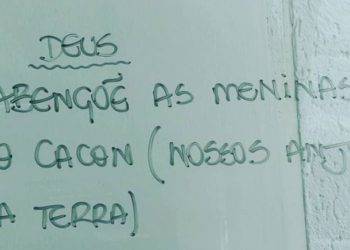 DEUS
ABENÇOE AS MENINAS
O CACON (NOSSOS ANJ
A TERRA)